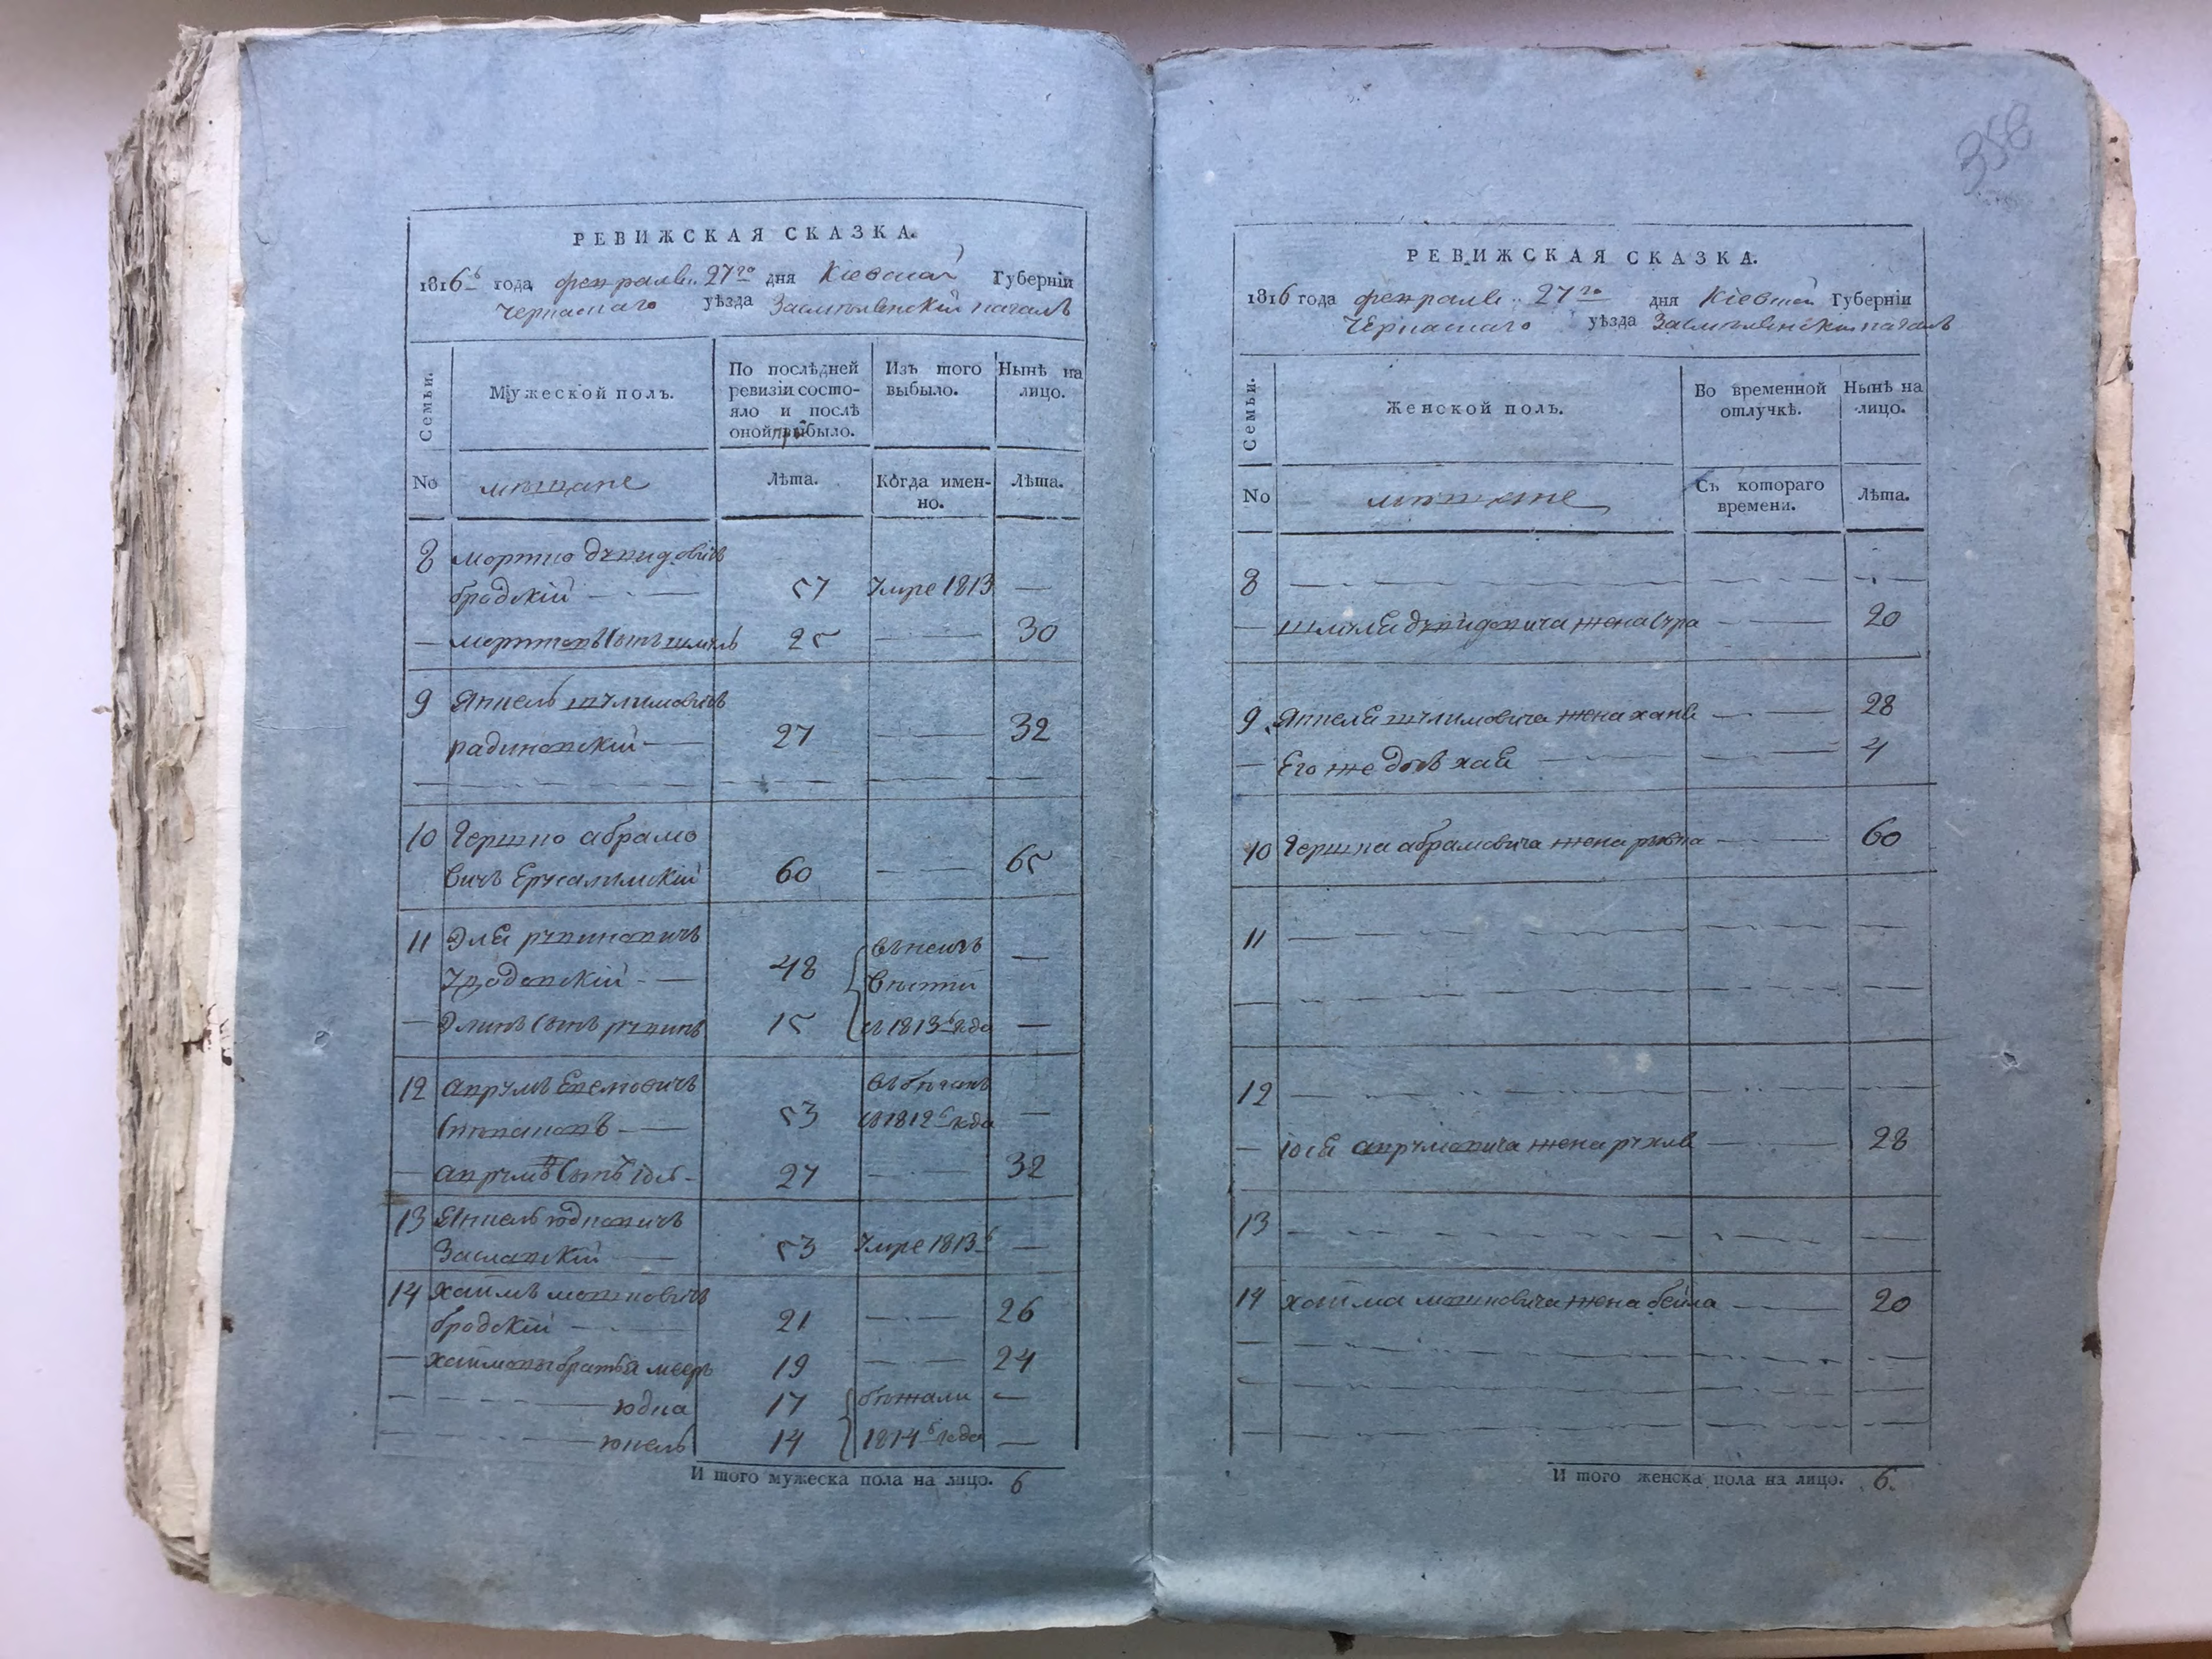 358
РЕВИЖСКАЯ СКАЗКА.
1816 года февраля 27го дня Кіевской Губерніи
Черкаскаго уѣзда
Семьи.
Мужеской полъ.
По послѣдней ревизіи состояло и послѣ оной прибыло.
Изъ того выбыло.
Нынѣ на лицо.
No
мѣщане
Лѣта.
Когда именно.
Лѣта.
8 Мортко
бродскій — 57 Умре 1813 —
— сынъ шмуль 25 — 30
9 Янкель шулимовичъ
27 — 32
10 Гершко абрамо
вичъ Ерусалимскій 60 — 65
11 Эля рувиновичъ
48 —
— Элинъ сынъ рувинъ 15 въ 1813 года —
12 аврумъ
53 въ бѣгахъ съ 1812 года —
— аврумовъ сынъ 27 — 32
13 Янкель юдковичъ
Заславскій — 53 Умре 1813 —
14 Хаимъ мошковичъ
бродскій — 21 — 26
— Хаимовы братья мееръ 19 — 24
юдка 17 бѣжали —
юкель 14 1814 года —
И того мужеска пола на лицо. 6
РЕВИЖСКАЯ СКАЗКА.
1816 года февраля 27го дня Кіевской Губерніи
Черкаскаго уѣзда
Семьи.
Женской полъ.
Во временной отлучкѣ.
Нынѣ на лицо.
No
мѣщане
Съ котораго времени.
Лѣта.
8
— жена сура — 20
9 Янкеля шулимовича жена хана — 28
— Его же дочь хая — 4
10 Гершка абрамовича жена — 60
11
12
— аврумовича жена рухля — 28
13
14 хаима мошковича жена бейла — 20
И того женска пола на лицо. 6.